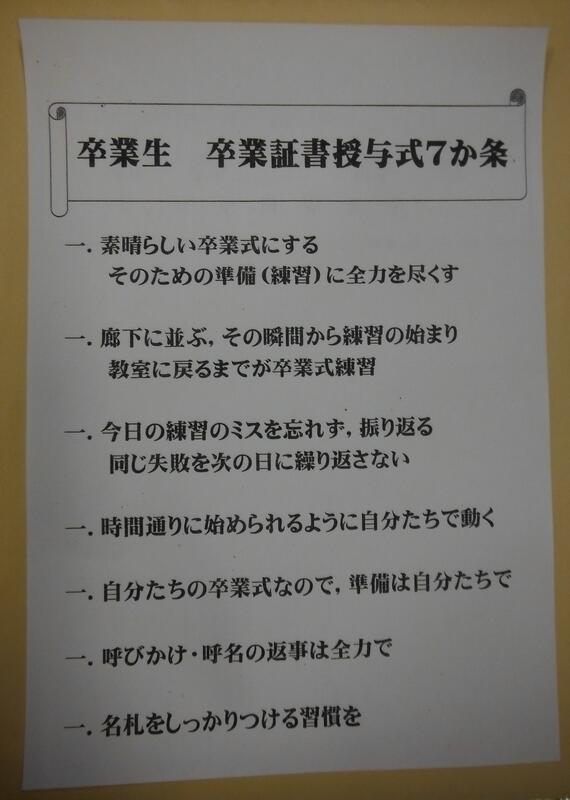 卒業生　卒業証書授与式7か条
一．素晴らしい卒業式にする
そのための準備(練習)に全力を尽くす
一．廊下に並ぶ，その瞬間から練習の始まり
教室に戻るまでが卒業式練習
一．今日の練習のミスを忘れず，振り返る
同じ失敗を次の日に繰り返さない
一．時間通りに始められるように自分たちで動く
一．自分たちの卒業式なので，準備は自分たちで
一．呼びかけ・呼名の返事は全力で
一．名札をしっかりつける習慣を